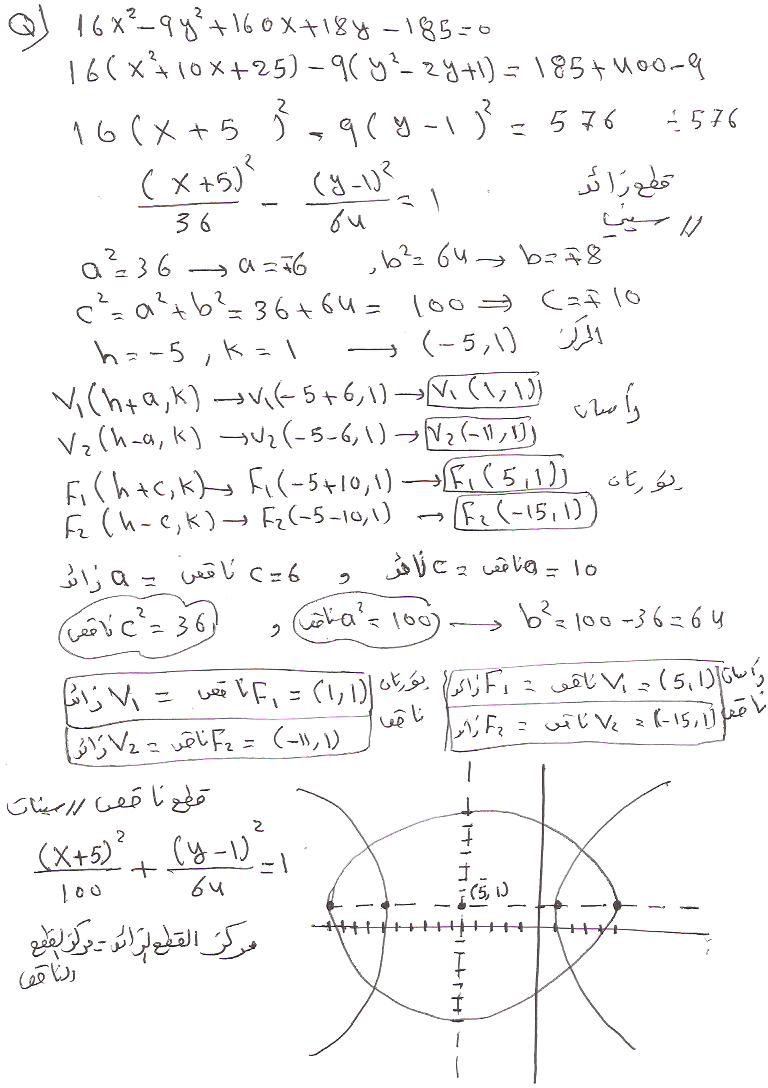 Q) 16x² - 9y² + 160x + 18y - 185 = 0
16(x² + 10x + 25) - 9(y² - 2y + 1) = 185 + 400 - 9
16(x + 5)² - 9(y - 1)² = 576 ÷ 576
(x+5)²/36 - (y-1)²/64 = 1 قطع زائد // سيني
a² = 36 → a = ∓6 , b² = 64 → b = ∓8
c² = a² + b² = 36 + 64 = 100 ⇒ c = ∓10
h = -5 , k = 1 → (-5, 1) المركز
V₁(h+a, k) → V₁(-5+6, 1) → V₁(1, 1) رأسان
V₂(h-a, k) → V₂(-5-6, 1) → V₂(-11, 1)
F₁(h+c, k) → F₁(-5+10, 1) → F₁(5, 1) بؤرتان
F₂(h-c, k) → F₂(-5-10, 1) → F₂(-15, 1)
زائد a = ناقص c = 6 و زائد c = ناقص a = 10
ناقص c² = 36 , ناقص a² = 100 → b² = 100 - 36 = 64
زائد V₁ = ناقص F₁ = (1, 1) بؤرتان ناقص
زائد V₂ = ناقص F₂ = (-11, 1)
زائد F₁ = ناقص V₁ = (5, 1) رأسان ناقص
زائد F₂ = ناقص V₂ = (-15, 1)
قطع ناقص // سينات
(x+5)²/100 + (y-1)²/64 = 1
(-5, 1)
مركز القطع الزائد = مركز القطع
الناقص